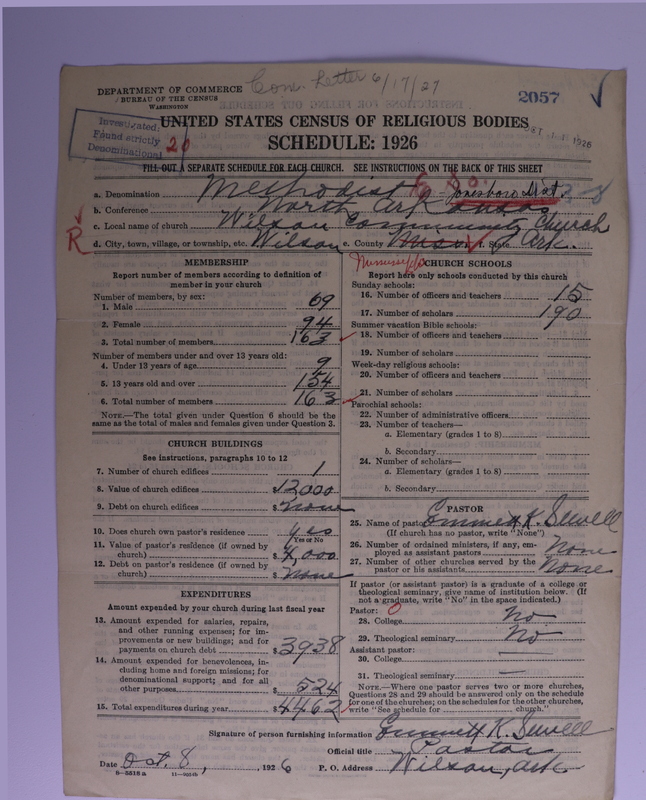 DEPARTMENT OF COMMERCE
BUREAU OF THE CENSUS
WASHINGTON
Com. Letter 6/17/27
2057
Investigated:
Found strictly
Denominational
20
UNITED STATES CENSUS OF RELIGIOUS BODIES
SCHEDULE: 1926
1926
FILL OUT A SEPARATE SCHEDULE FOR EACH CHURCH. SEE INSTRUCTIONS ON THE BACK OF THIS SHEET
a. Denomination Methodist E. So. - Jonesboro Dist.
b. Conference North Arkansas
c. Local name of church Wilson Community Church
R
d. City, town, village, or township, etc. Wilson e. County Miss. f. State Ark.
Mississippi
MEMBERSHIP
Report number of members according to definition of
member in your church
Number of members, by sex:
1. Male 69
2. Female 94
3. Total number of members 163
Number of members under and over 13 years old:
4. Under 13 years of age 9
5. 13 years old and over 154
6. Total number of members 163
NOTE.—The total given under Question 6 should be the
same as the total of males and females given under Question 3.
CHURCH BUILDINGS
See instructions, paragraphs 10 to 12
7. Number of church edifices 1
8. Value of church edifices $12000
9. Debt on church edifices $ None
10. Does church own pastor's residence yes
Yes or No
11. Value of pastor's residence (if owned by
church) $4,000
12. Debt on pastor's residence (if owned by
church) $ None
EXPENDITURES
Amount expended by your church during last fiscal year
13. Amount expended for salaries, repairs,
and other running expenses; for im-
provements or new buildings; and for
payments on church debt $3938
14. Amount expended for benevolences, in-
cluding home and foreign missions; for
denominational support; and for all
other purposes $524
15. Total expenditures during year $4462
CHURCH SCHOOLS
Report here only schools conducted by this church
Sunday schools:
16. Number of officers and teachers 15
17. Number of scholars 190
Summer vacation Bible schools:
18. Number of officers and teachers
19. Number of scholars
Week-day religious schools:
20. Number of officers and teachers
21. Number of scholars
Parochial schools:
22. Number of administrative officers
23. Number of teachers—
a. Elementary (grades 1 to 8)
b. Secondary
24. Number of scholars—
a. Elementary (grades 1 to 8)
b. Secondary
PASTOR
25. Name of pastor Emmett K. Sewell
(If church has no pastor, write "None")
26. Number of ordained ministers, if any, em-
ployed as assistant pastors None
27. Number of other churches served by the
pastor or his assistants None
If pastor (or assistant pastor) is a graduate of a college or
theological seminary, give name of institution below. (If
not a graduate, write "No" in the space indicated.)
Pastor: 0
28. College No
29. Theological seminary No
Assistant pastor:
30. College —
31. Theological seminary —
NOTE.—Where one pastor serves two or more churches,
Questions 28 and 29 should be answered only on the schedule
for one of the churches; on the schedules for the other churches,
write "See schedule for church."
Signature of person furnishing information Emmett K. Sewell
Official title Pastor
Date Oct. 8, 1926 P. O. Address Wilson, Ark.